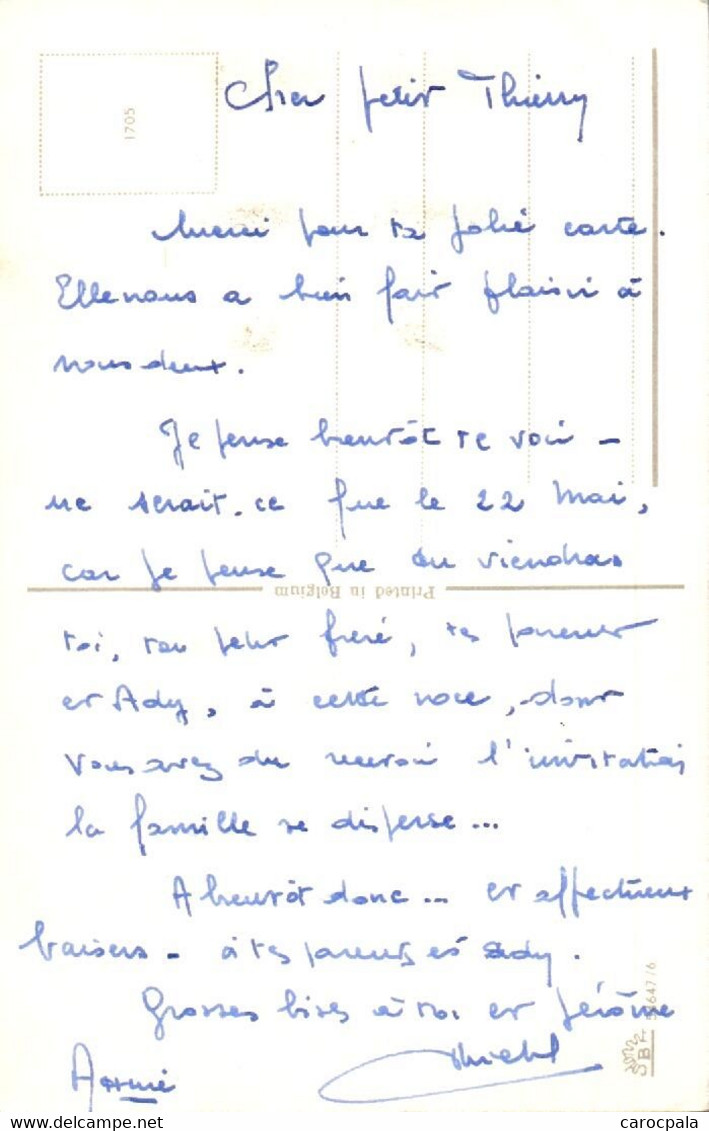 1705
Cher petit Thierry
Merci pour ta jolie carte.
Elle nous a bien fait plaisir à
nous deux.
Je pense bientôt te voir -
ne serait-ce que le 22 Mai,
car je pense que tu viendras
Printed in Belgium
toi, ton petit frère, tes parents
et Ady, à cette noce, dont
vous avez du recevoir l'invitation
la famille se disperse...
A bientôt donc... et affectueux
baisers - à tes parents et Ady.
Grosses bises à toi et Jérôme
SBF
carocpala